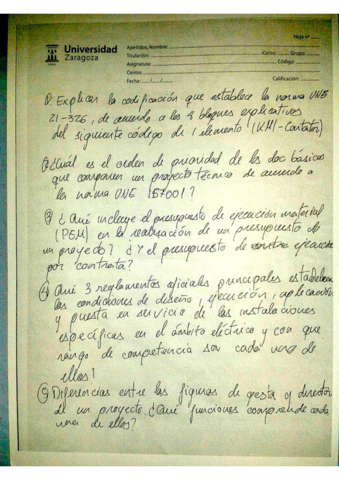 Hoja nº
Universidad
Zaragoza
1542
Apellidos, Nombre:
Titulación: Curso: Grupo:
Asignatura: Código:
Centro:
Fecha: / / Calificación:
① Explicar la codificación que establece la norma UNE
21-326, de acuerdo a los 4 bloques explicativos
del siguiente código de 1 elemento (KM1-Contator)
② ¿Cuál es el orden de prioridad de los doc básicos
que componen un proyecto técnico de acuerdo a
la norma UNE 157001?
③ ¿Qué incluye el presupuesto de ejecución material
(PEM) en la realización de un presupuesto de
un proyecto? ¿Y el presupuesto de ejecución
por contrata?
④ Qué 3 reglamentos oficiales principales establecen
las condiciones de diseño, ejecución, aplicación
y puesta en servicio de las instalaciones
específicas en el ámbito eléctrico y con que
rango de competencia son cada uno de
ellos?
⑤ Diferencias entre las figuras de gestor y director
de un proyecto. ¿Qué funciones comprende cada
una de ellas?